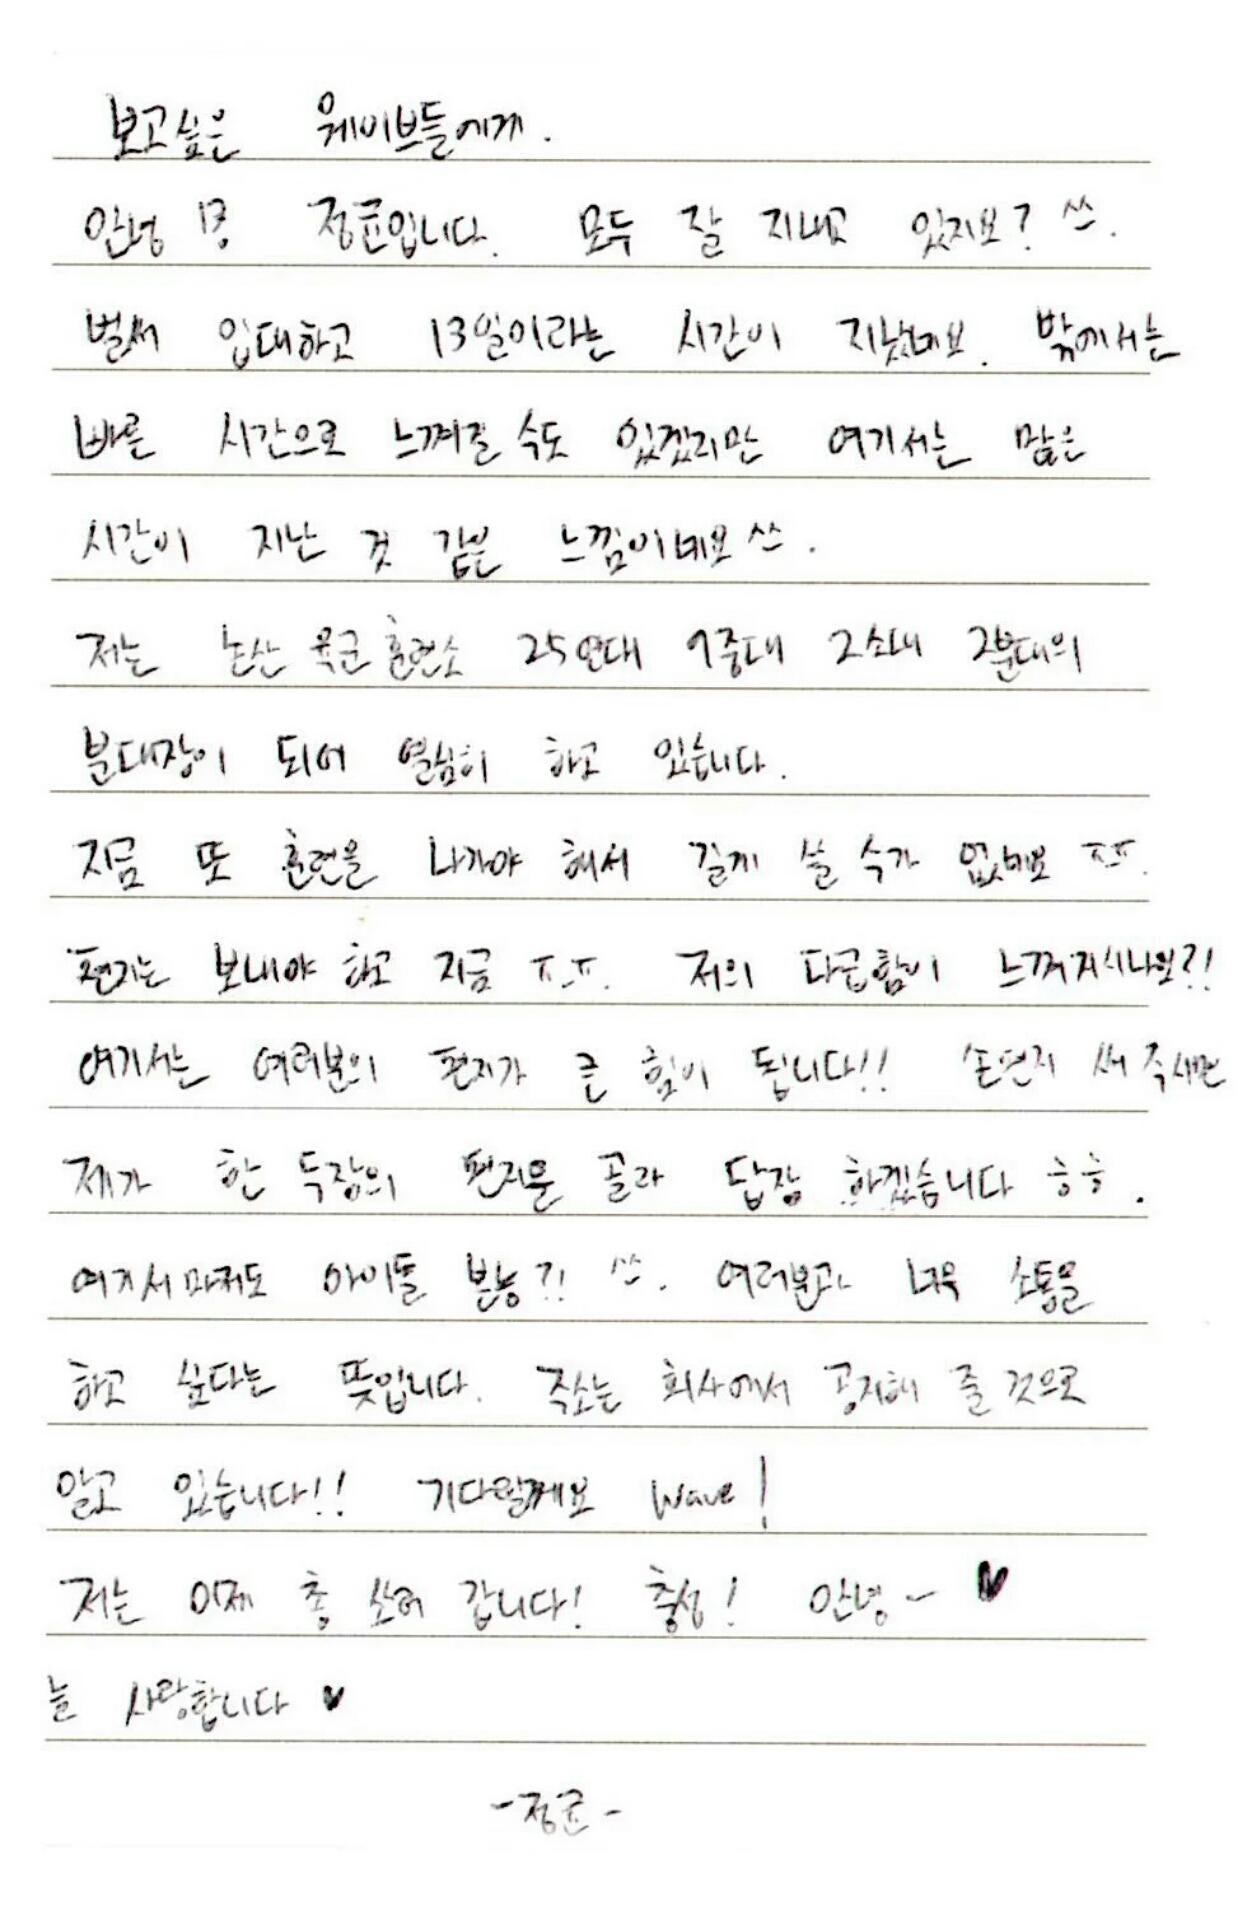 보고싶은 웨이브들에게.
안녕 정균입니다. 모두 잘 지내고 있지요? ^^.
벌써 입대하고 13일이라는 시간이 지났네요. 밖에서는
빠른 시간으로 느껴질 수도 있겠지만 여기서는 많은
시간이 지난 것 같은 느낌이네요 ^^.
저는 논산 육군훈련소 25연대 9중대 2소대 2분대의
분대장이 되어 열심히 하고 있습니다.
지금 또 훈련을 나가야 해서 길게 쓸 수가 없네요 ㅠㅠ.
편지는 보내야 하고 지금 ㅠㅠ. 저의 다급함이 느껴지시나요?!
여기서는 여러분의 편지가 큰 힘이 됩니다!! 손편지 써 주시면
제가 한 두장의 편지를 골라 답장 하겠습니다 ㅎㅎ.
여기서마저도 아이돌 본능?! ^^. 여러분과 너무 소통을
하고 싶다는 뜻입니다. 주소는 회사에서 공지해 줄 것으로
알고 있습니다!! 기다릴게요 wave!
저는 이제 총 쏘러 갑니다! 충성! 안녕~ ♥
늘 사랑합니다 ♥
-정균-